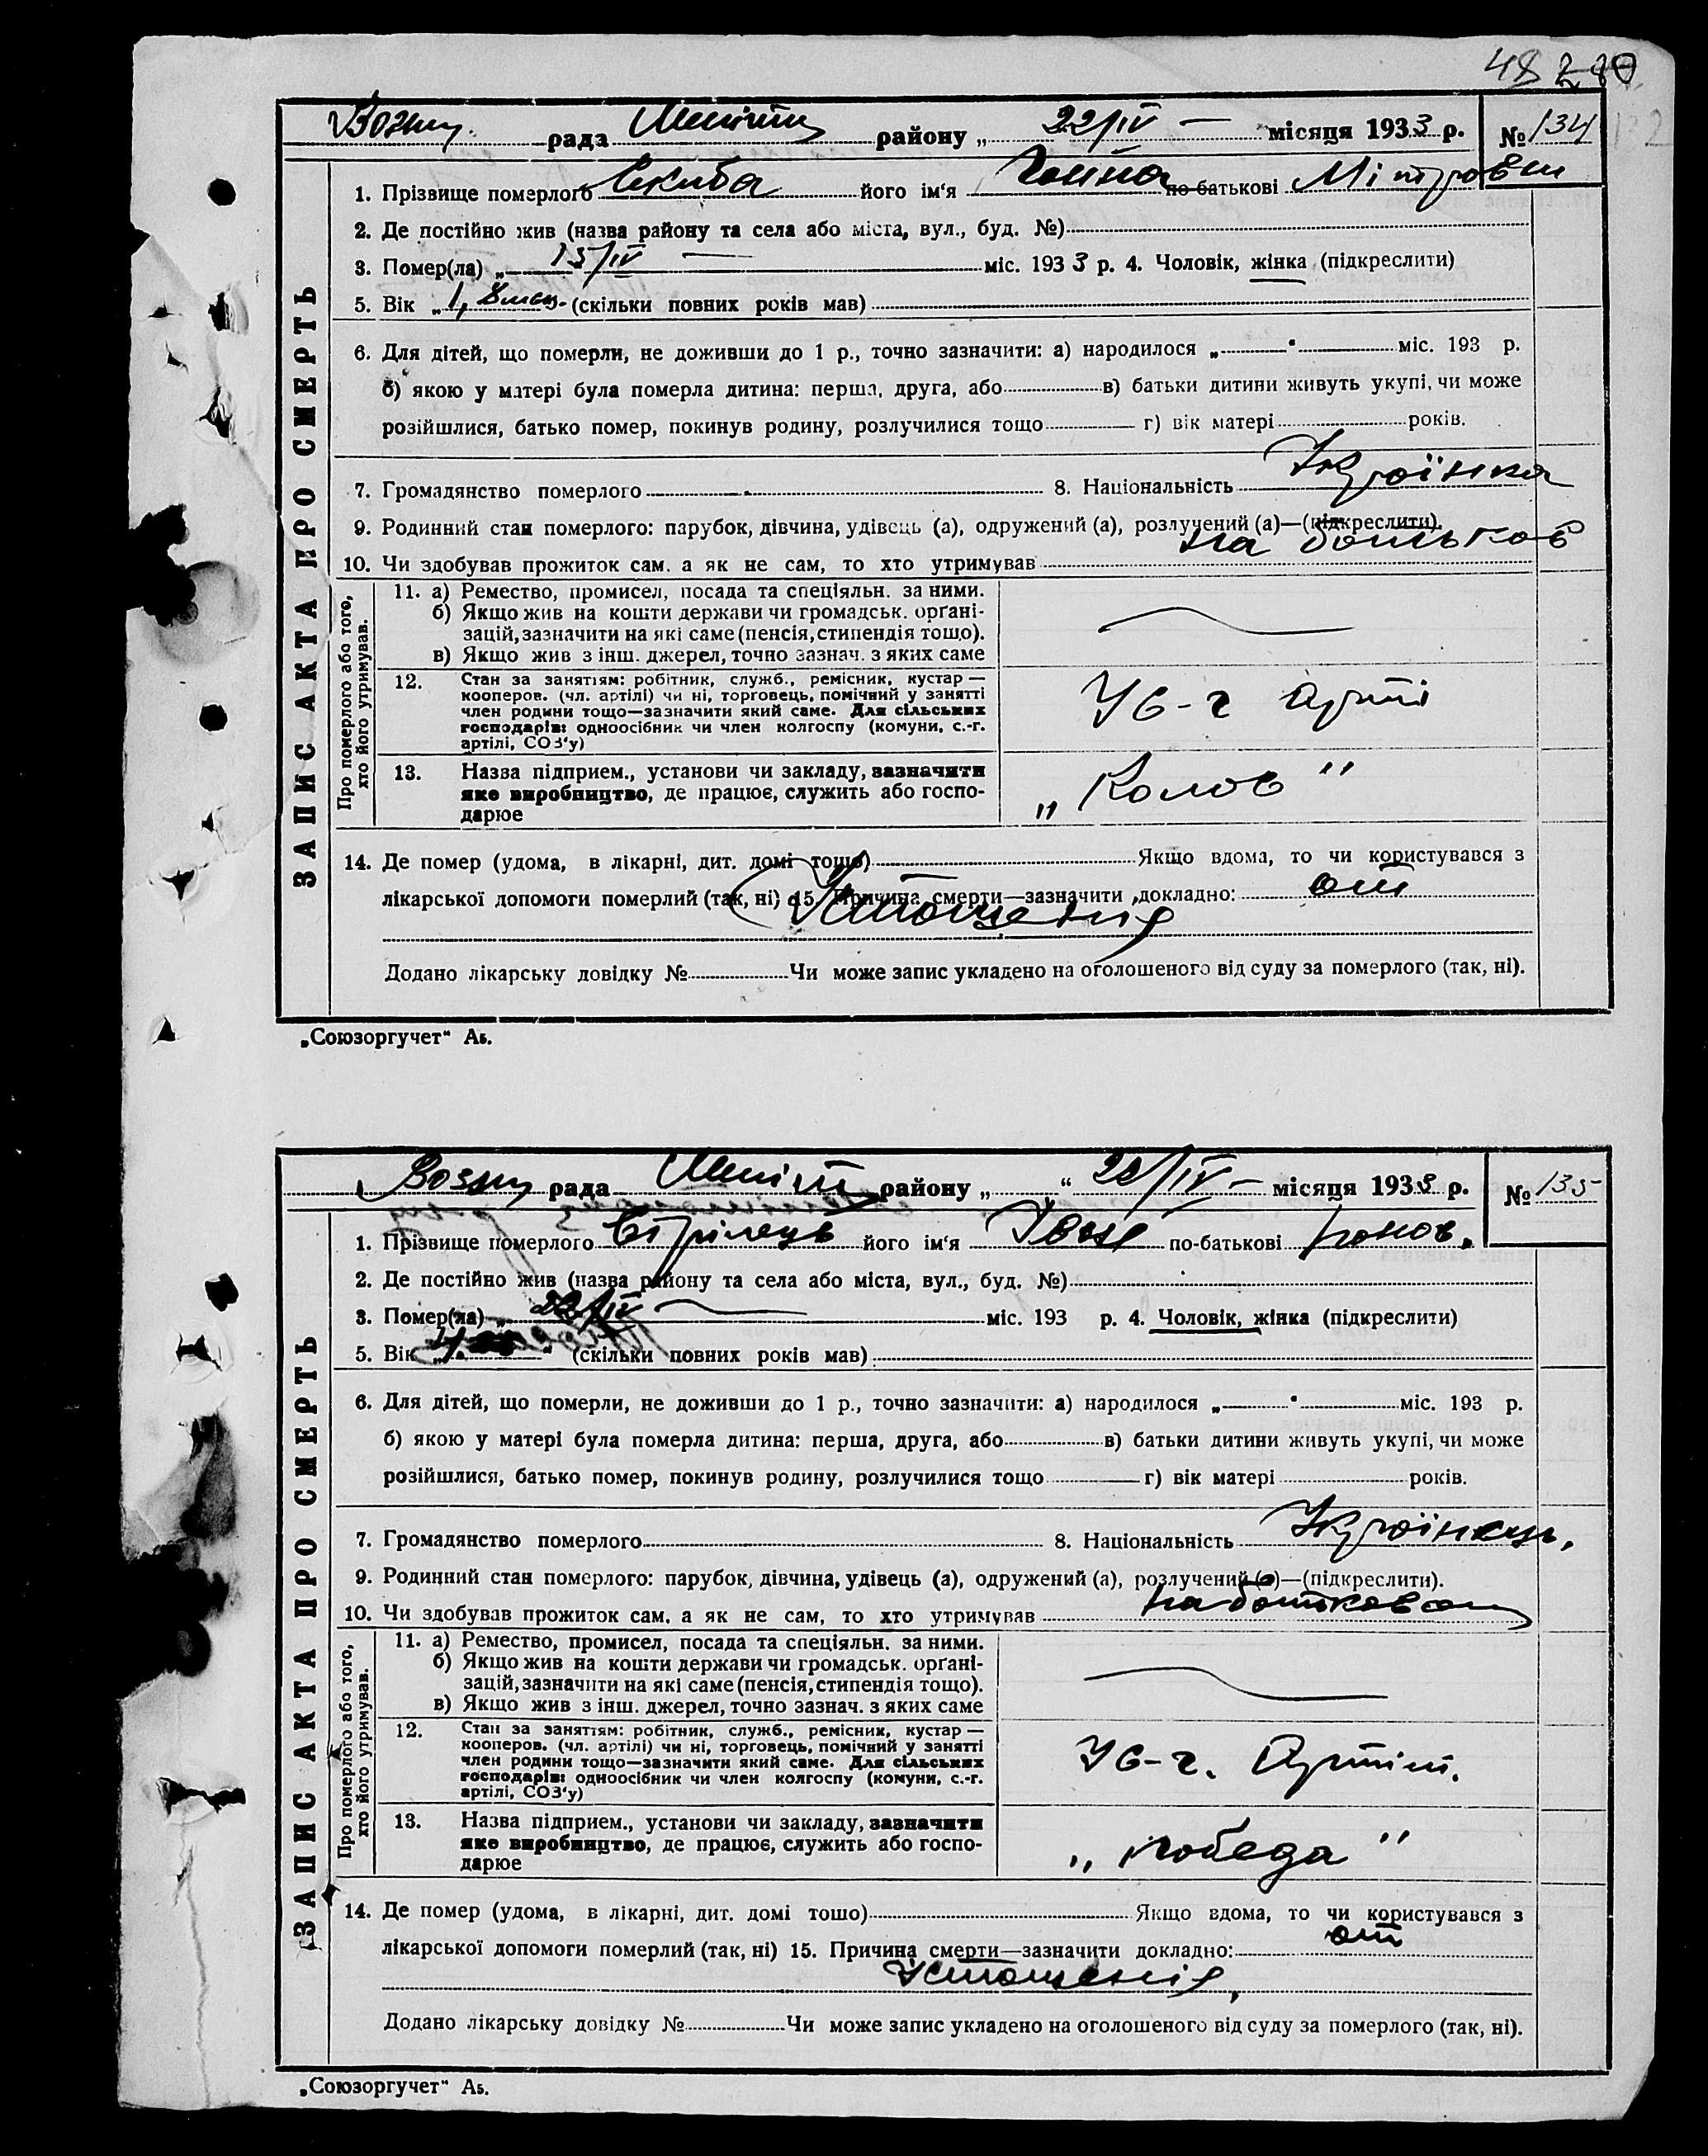 48
Возну. рада району „ 22/IV — " місяця 1933 р. № 134
1. Прізвище померлого Скиба його ім'я по батькові Мітровни
2. Де постійно жив (назва району та села або міста, вул., буд. №)
3. Помер(ла) „ 15/IV — міс. 1933 р. 4. Чоловік, жінка (підкреслити)
5. Вік „ 1, 8 мсц. (скільки повних років мав)
6. Для дітей, що померли, не доживши до 1 р., точно зазначити: а) народилося „ " міс. 193 р.
б) якою у матері була померла дитина: перша, друга, або в) батьки дитини живуть укупі, чи може
розійшлися, батько помер, покинув родину, розлучилися тощо г) вік матері років.
7. Громадянство померлого 8. Національність Україінка
9. Родинний стан померлого: парубок, дівчина, удівець (а), одружений (а), розлучений (а)—(підкреслити).
10. Чи здобував прожиток сам, а як не сам, то хто утримував на батьков
ЗАПИС АКТА ПРО СМЕРТЬ
Про померлого або того,
хто його утримував.
11. а) Ремество, промисел, посада та спеціяльн. за ними.
б) Якщо жив на кошти держави чи громадськ. орґані-
зацій, зазначити на які саме (пенсія, стипендія тощо).
в) Якщо жив з інш. джерел, точно зазнач. з яких саме
12. Стан за заняттям: робітник, служб., ремісник, кустар —
кооперов. (чл. артілі) чи ні, торговець, помічний у занятті
член родини тощо—зазначити який саме. Для сільських
господарів: одноосібник чи член колгоспу (комуни, с.-г.
артілі, СОЗ'у)
Чс-г арті
13. Назва підприєм., установи чи закладу, зазначити
яке виробництво, де працює, служить або госпо-
дарює
14. Де помер (удома, в лікарні, дит. домі тощо) Якщо вдома, то чи користувався з
лікарської допомоги померлий (так, ні) 15. Причина смерти—зазначити докладно: от
Устощенія
Додано лікарську довідку № Чи може запис укладено на оголошеного від суду за померлого (так, ні).
„Союзоргучет" А5.
Возну рада району „ " 22/IV — місяця 1933 р. № 135
1. Прізвище померлого Стрілець його ім'я по-батькові
2. Де постійно жив (назва району та села або міста, вул., буд. №)
3. Помер(ла) „ 22/IV — міс. 193 р. 4. Чоловік, жінка (підкреслити)
5. Вік „ " (скільки повних років мав)
6. Для дітей, що померли, не доживши до 1 р., точно зазначити: а) народилося „ " міс. 193 р.
б) якою у матері була померла дитина: перша, друга, або в) батьки дитини живуть укупі, чи може
розійшлися, батько помер, покинув родину, розлучилися тощо г) вік матері років.
7. Громадянство померлого 8. Національність Україінець,
9. Родинний стан померлого: парубок, дівчина, удівець (а), одружений (а), розлучений (а)—(підкреслити).
10. Чи здобував прожиток сам, а як не сам, то хто утримував
ЗАПИС АКТА ПРО СМЕРТЬ
Про померлого або того,
хто його утримував.
11. а) Ремество, промисел, посада та спеціяльн. за ними.
б) Якщо жив на кошти держави чи громадськ. орґані-
зацій, зазначити на які саме (пенсія, стипендія тощо).
в) Якщо жив з інш. джерел, точно зазнач. з яких саме
12. Стан за заняттям: робітник, служб., ремісник, кустар —
кооперов. (чл. артілі) чи ні, торговець, помічний у занятті
член родини тощо—зазначити який саме. Для сільських
господарів: одноосібник чи член колгоспу (комуни, с.-г.
артілі, СОЗ'у)
Чс-г. Артіл.
13. Назва підприєм., установи чи закладу, зазначити
яке виробництво, де працює, служить або госпо-
дарює
„ победа "
14. Де помер (удома, в лікарні, дит. домі тощо) Якщо вдома, то чи користувався з
лікарської допомоги померлий (так, ні) 15. Причина смерти—зазначити докладно: от
Устощенія,
Додано лікарську довідку № Чи може запис укладено на оголошеного від суду за померлого (так, ні).
„Союзоргучет" А5.